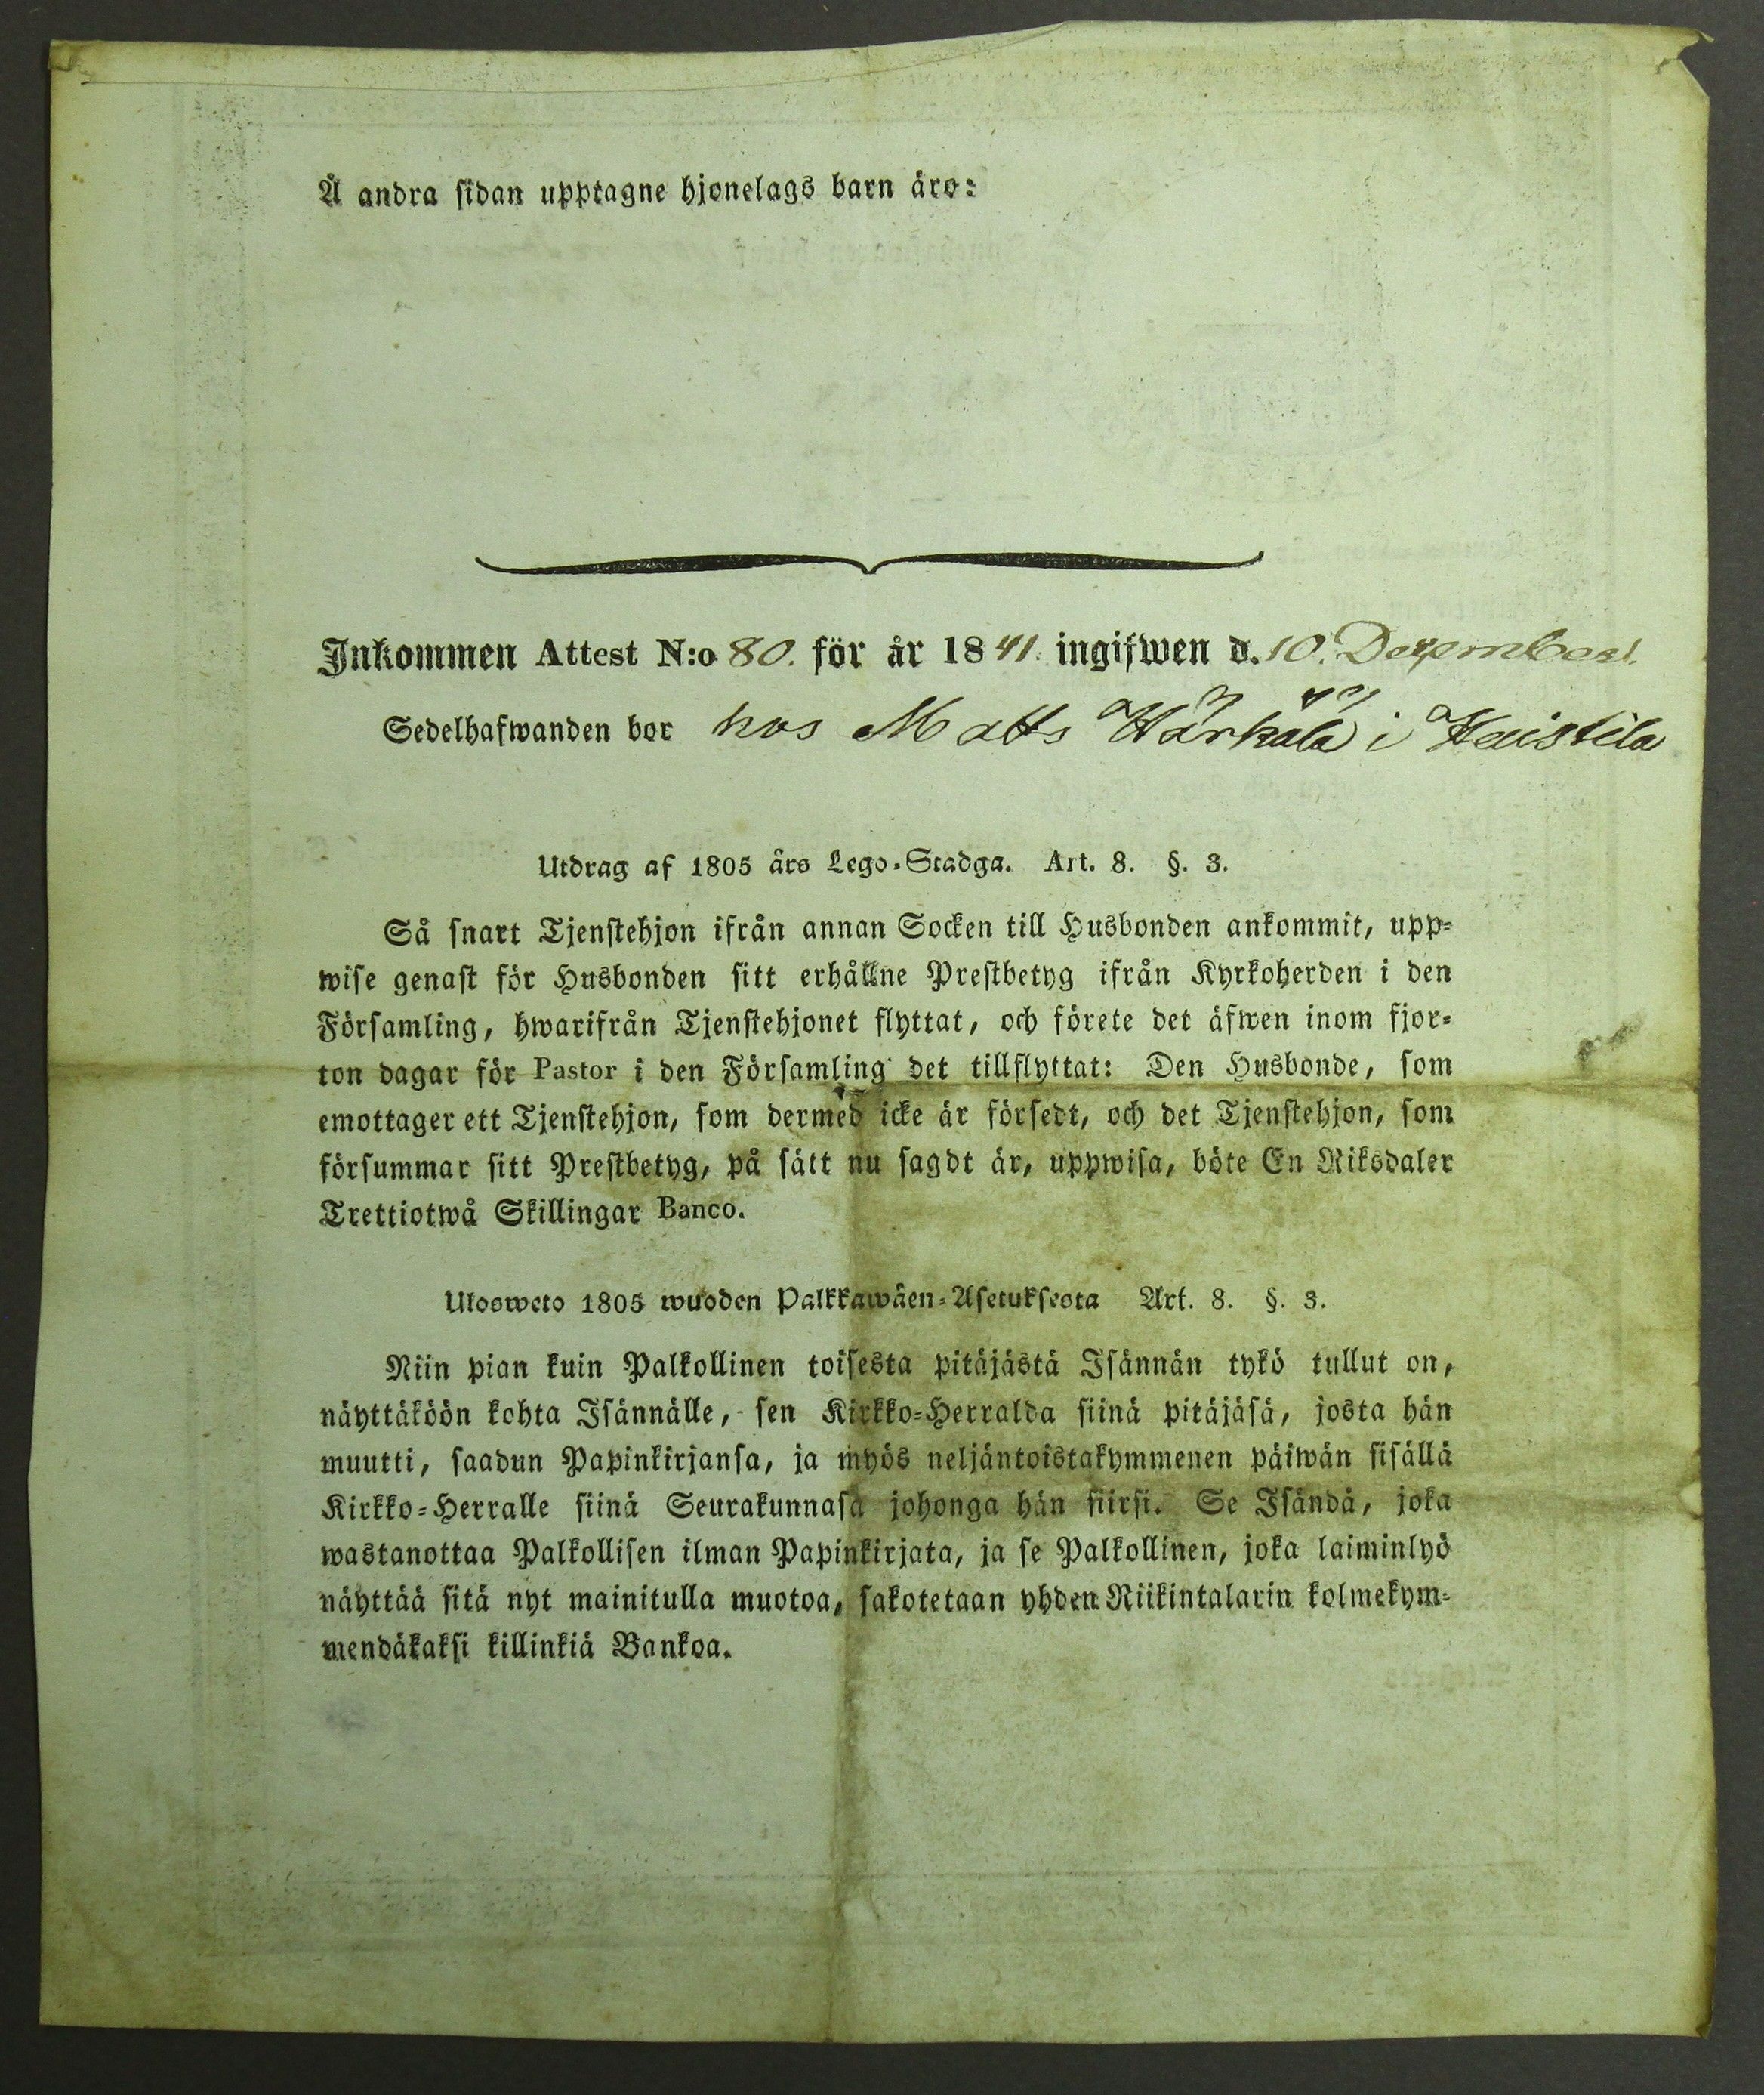 Å andra sidan upptagne hjonelags barn äro:
Inkommen Attest N:o 80. för år 1841. ingifwen d. 10. December.
Sedelhafwanden bor hos Matts Härkälä i Haistila
Utdrag af 1805 års Lego-Stadga. Art. 8. §. 3.
Så snart Tjenstehjon ifrån annan Socken till Husbonden ankommit, upp-
wise genast för Husbonden sitt erhållne Prestbetyg ifrån Kyrkoherden i den
Församling, hwarifrån Tjenstehjonet flyttat, och förete det äfwen inom fjor-
ton dagar för Pastor i den Församling det tillflyttat: Den Husbonde, som
emottager ett Tjenstehjon, som dermed icke är försedt, och det Tjenstehjon, som
försummar sitt Prestbetyg, på sätt nu sagdt är, uppwisa, böte En Riksdaler
Trettiotwå Skillingar Banco.
Ulosweto 1805 wuoden Palkkawäen-Asetuksesta Art. 8. §. 3.
Niin pian kuin Palkollinen toisesta pitäjästä Isännän tykö tullut on,
näyttäköön kohta Isännälle, sen Kirkko-Herralda siinä pitäjäsä, josta hän
muutti, saadun Papinkirjansa, ja myös neljäntoistakymmenen päiwän sisällä
Kirkko-Herralle siinä Seurakunnasa johonga hän siirsi. Se Isändä, joka
wastanottaa Palkollisen ilman Papinkirjata, ja se Palkollinen, joka laiminlyö
näyttää sitä nyt mainitulla muotoa, sakotetaan yhden Riikintalarin kolmekym-
mendäkaksi killinkiä Bankoa.